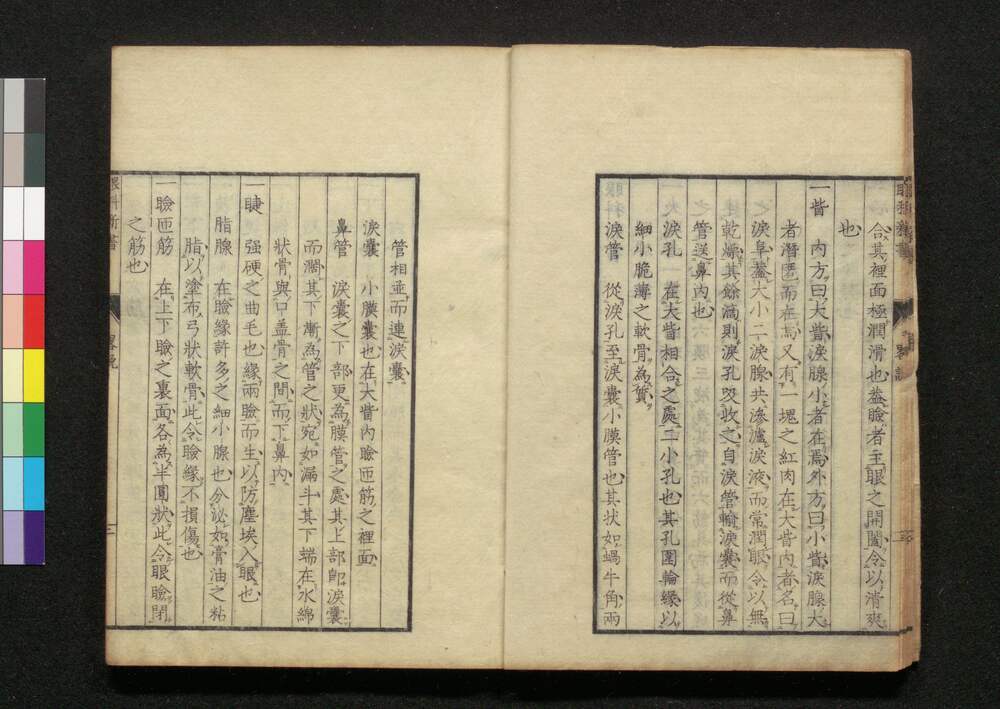 合其裡面極潤滑也蓋瞼者主眼之開闔令以清爽
也
一眥　內方曰大眥淚腺小者在焉外方曰小眥淚腺大
者潛匿而在焉又有一塊之紅肉在大眥內者名曰
之淚阜蓋大小二淚腺共滲瀘淚液而常潤眼令以無
乾燥其餘滴則淚孔吸收之自淚管輸淚囊而從鼻
管送鼻內也
淚孔　在大眥相合之處二小孔也其孔圍輪緣以
細小脆薄之軟骨為質
淚管　從淚孔至淚囊小膜管也其狀如蝸牛角兩
管相並而連淚囊
淚囊　小膜囊也在大眥內瞼匝筋之裡面
鼻管　淚囊之下部更為膜管之處其上部即淚囊
而濶其下漸為管之狀宛如漏斗其下端在水綿
狀骨與口蓋骨之間而下鼻內
一睫　强硬之曲毛也緣兩瞼而生以防塵埃入眼也
脂腺　在瞼緣許多之細小腺也分泌如膏油之粘
脂以塗布弓狀軟骨此令瞼緣不損傷也
一瞼匝筋　在上下瞼之裏面各為半圓狀此令眼瞼閉
之筋也
眼科新書